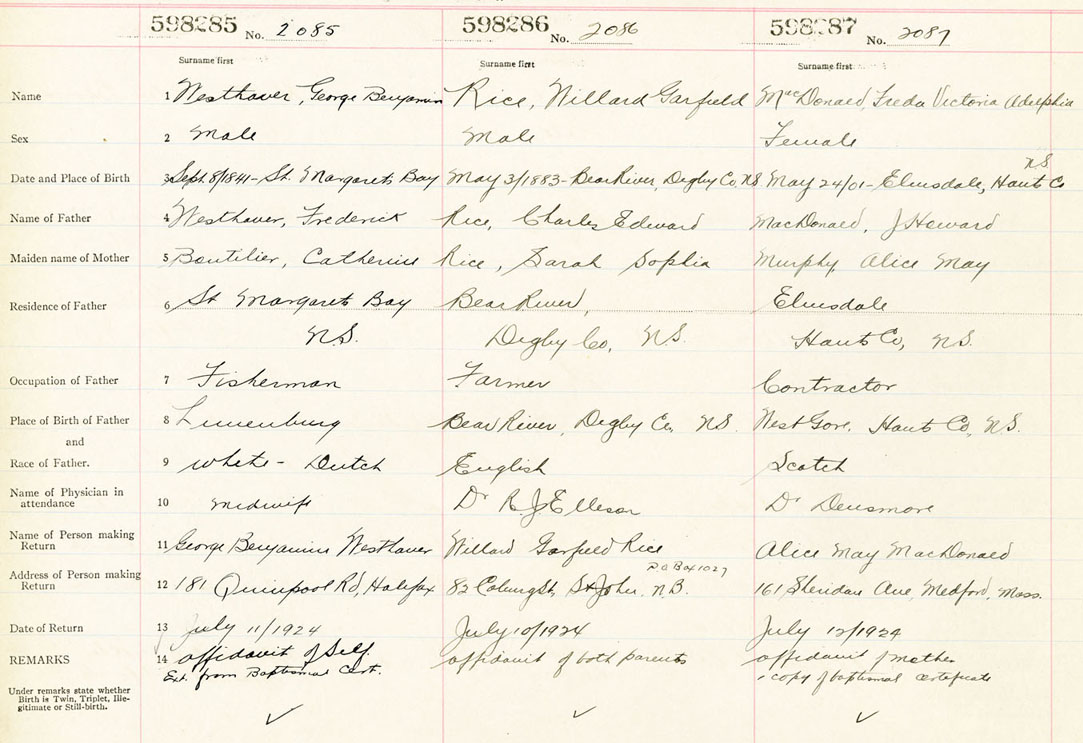 598285 No. 2085 598286 No. 2086 598287 No. 2087
Surname first Surname first Surname first
Name 1 Westhaver, George Benjamin Rice, Willard Garfield MacDonald, Freda Victoria Adelphia
Sex 2 Male Male Female
N.S
Date and Place of Birth 3 Sept. 8/1841 - St. Margarets Bay May 3/1883 - Bear River, Digby Co, N.S May 24/01 - Elmsdale, Hants Co
Name of Father 4 Westhaver, Frederick Rice, Charles Edward MacDonald, J Howard
Maiden name of Mother 5 Boutilier, Catherine Rice, Sarah Sophia Murphy Alice May
Residence of Father 6 St Margarets Bay Bear River, Elmsdale
N.S. Digby Co, N.S. Hants Co, N.S.
Occupation of Father 7 Fisherman Farmer Contractor
Place of Birth of Father 8 Lunenburg Bear River, Digby Co, N.S. West Gore, Hants Co, N.S.
and
Race of Father. 9 white - Dutch English Scotch
Name of Physician in
attendance 10 midwife Dr R. J Ellison Dr Densmore
Name of Person making
Return 11 George Benjamin Westhaver Willard Garfield Rice Alice May MacDonald
P O Box 1027
Address of Person making
Return 12 181 Quinpool Rd, Halifax 82 Coburg St, St John, N.B. 161 Sheridan Ave, Medford, Mass.
Date of Return 13 July 11/1924 July 10/1924 July 12/1924
REMARKS 14 affidavit of Self affidavit of both parents affidavit of mother
Ext. from Baptismal Cert. & copy of baptismal certificate
Under remarks state whether
Birth is Twin, Triplet, Ille-
gitimate or Still-birth.